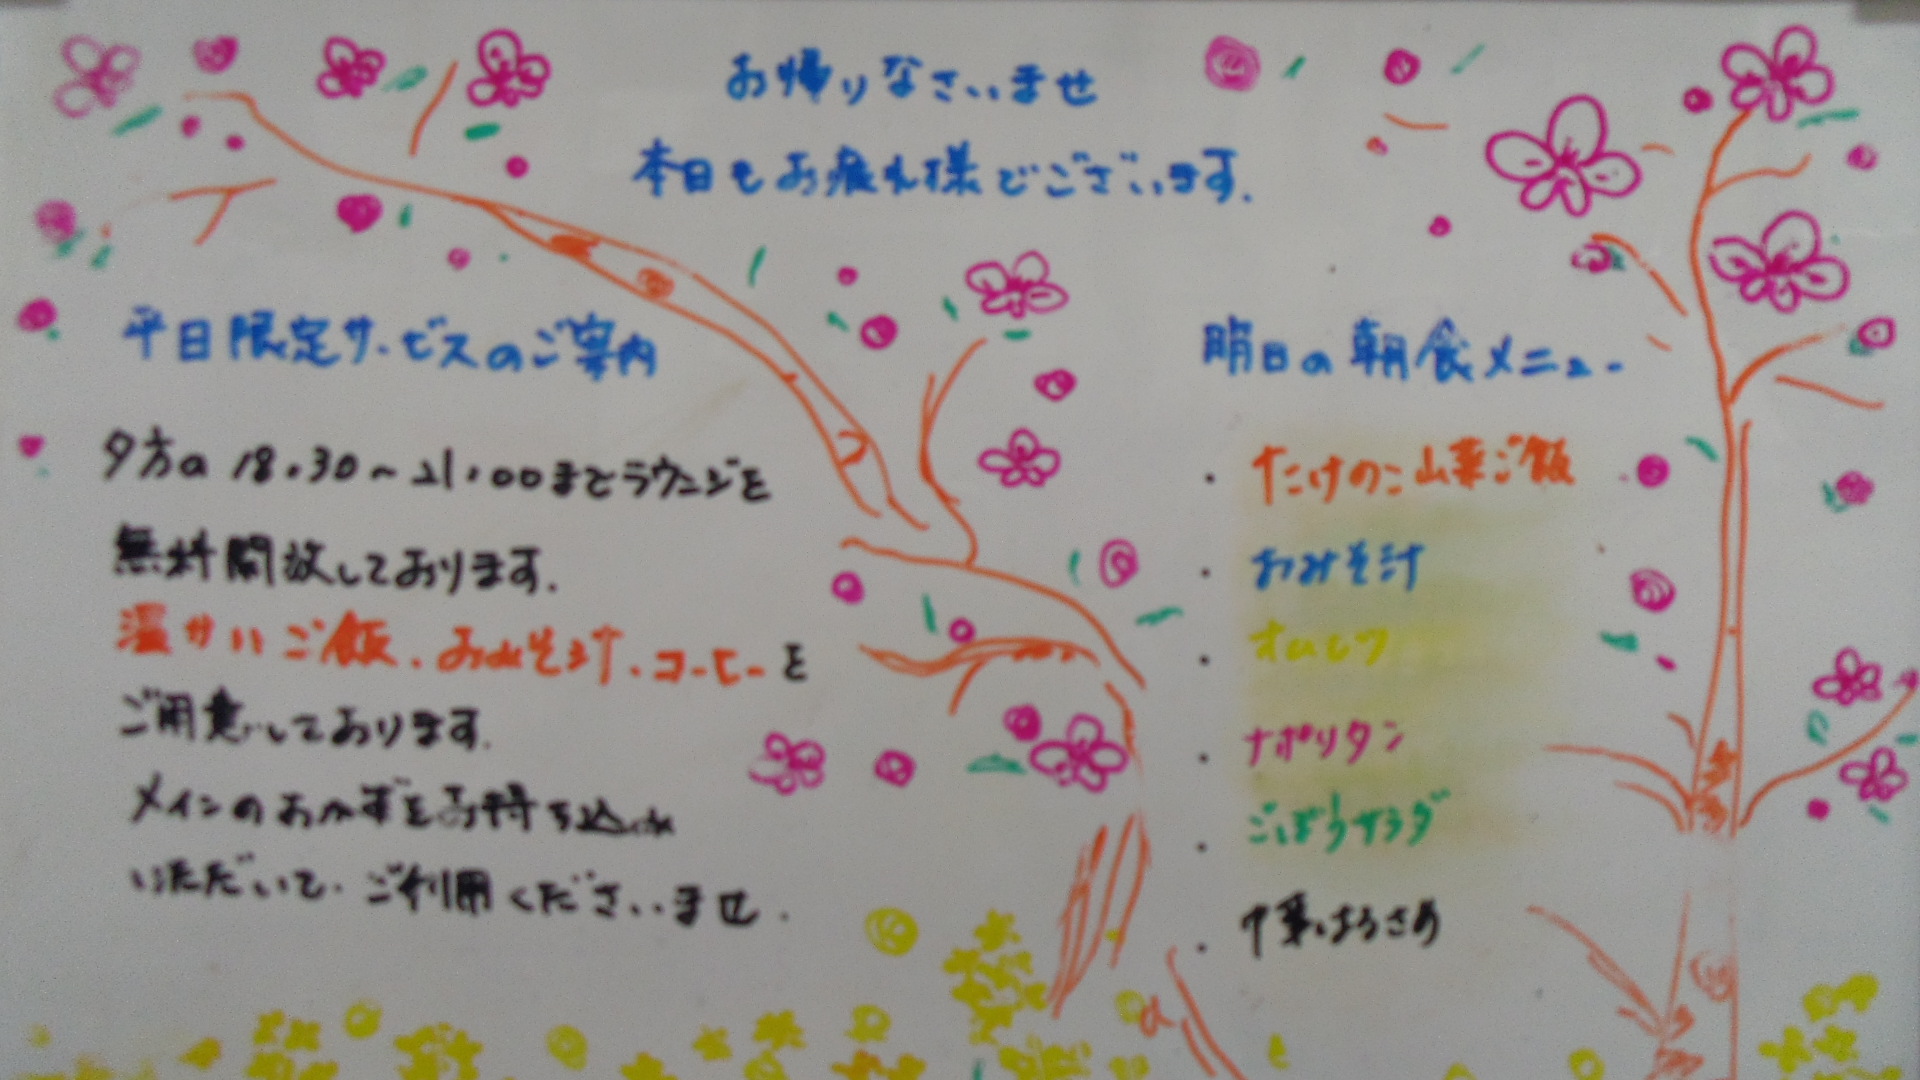 お帰りなさいませ
本日もお疲れ様でございます.
平日限定サービスのご案内
夕方の 18.30～21.00までラウンジを
無料開放しております.
温かいご飯.おみそ汁.コーヒーを
ご用意しております.
メインのおかずをお持ち込み
いただいて.ご利用くださいませ.
明日の朝食メニュー
・たけのこ山菜ご飯
・おみそ汁
・オムレツ
・ナポリタン
・ごぼうサラダ
・中華はるさめ